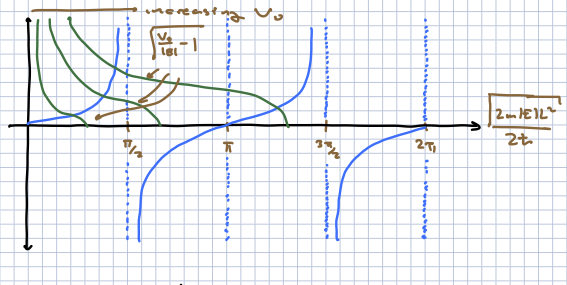 increasing V₀
√(V₀/|E| - 1)
π/2
π
3π/2
2π
√(2m|E|L²)/2ħ